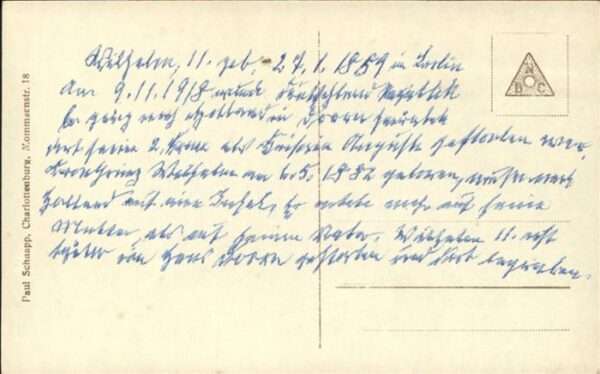 Wilhelm, II. geb. 27.1.1859 in Berlin
Am 9.11.1918 wurde Deutschland Republik
Er ging nach Holland in Doorn heiratete
dort seine 2. Frau als Kaiserin Auguste gestorben war.
Kronprinz Wilhelm am 6.5.1882 geboren, mußte nach
Holland auf eine Insel, Er artete mehr auf seine
Mutter, als auf seinen Vater. Wilhelm II. ist
später von Haus Doorn gestorben und dort begraben.
N
B C
Paul Schnapp, Charlottenburg, Mommsenstr. 18